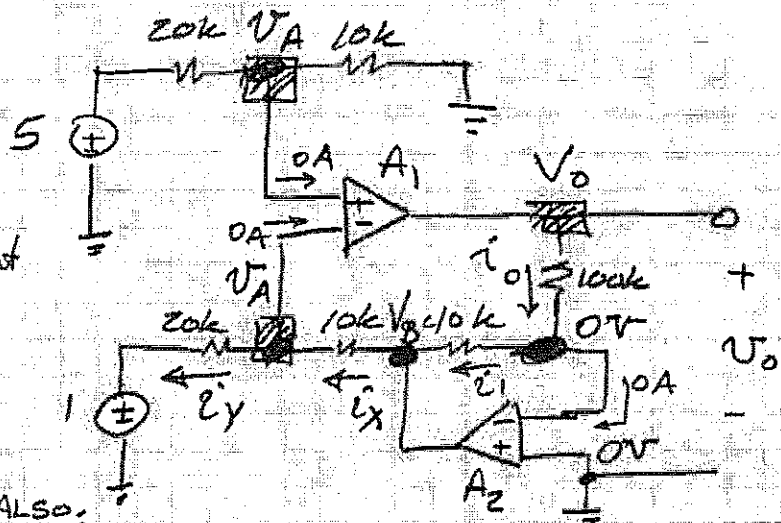 20k V_A 10k
5 ±
0A A₁ V₀
0A + -
i₀ 100k +
V_A
20k 10k V_B 10k 0V V₀
1 ± i_y i_x i₁ 0A -
- + 0V
A₂
ALSO.